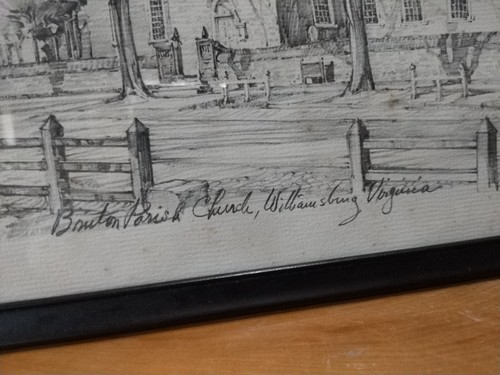 Bruton Parish Church, Williamsburg Virginia